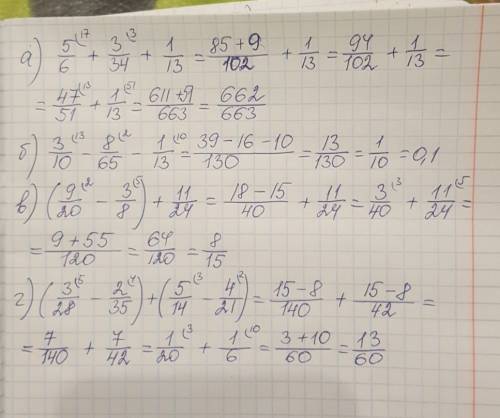 а) 5/6^(17 + 3/34^(3 + 1/13 = (85 + 9)/102 + 1/13 = 94/102 + 1/13 =
= 47/51^(13 + 1/13^(51 = (611 + 51)/663 = 662/663
б) 3/10^(13 - 8/65^(2 - 1/13^(10 = (39 - 16 - 10)/130 = 13/130 = 1/10 = 0,1
в) (9/20^(2 - 3/8^(5) + 11/24 = (18 - 15)/40 + 11/24 = 3/40^(3 + 11/24^(5 =
= (9 + 55)/120 = 64/120 = 8/15
г) (3/28^(5 - 2/35^(4) + (5/14^(3 - 4/21^(2) = (15 - 8)/140 + (15 - 8)/42 =
= 7/140 + 7/42 = 1/20^(3 + 1/6^(10 = (3 + 10)/60 = 13/60